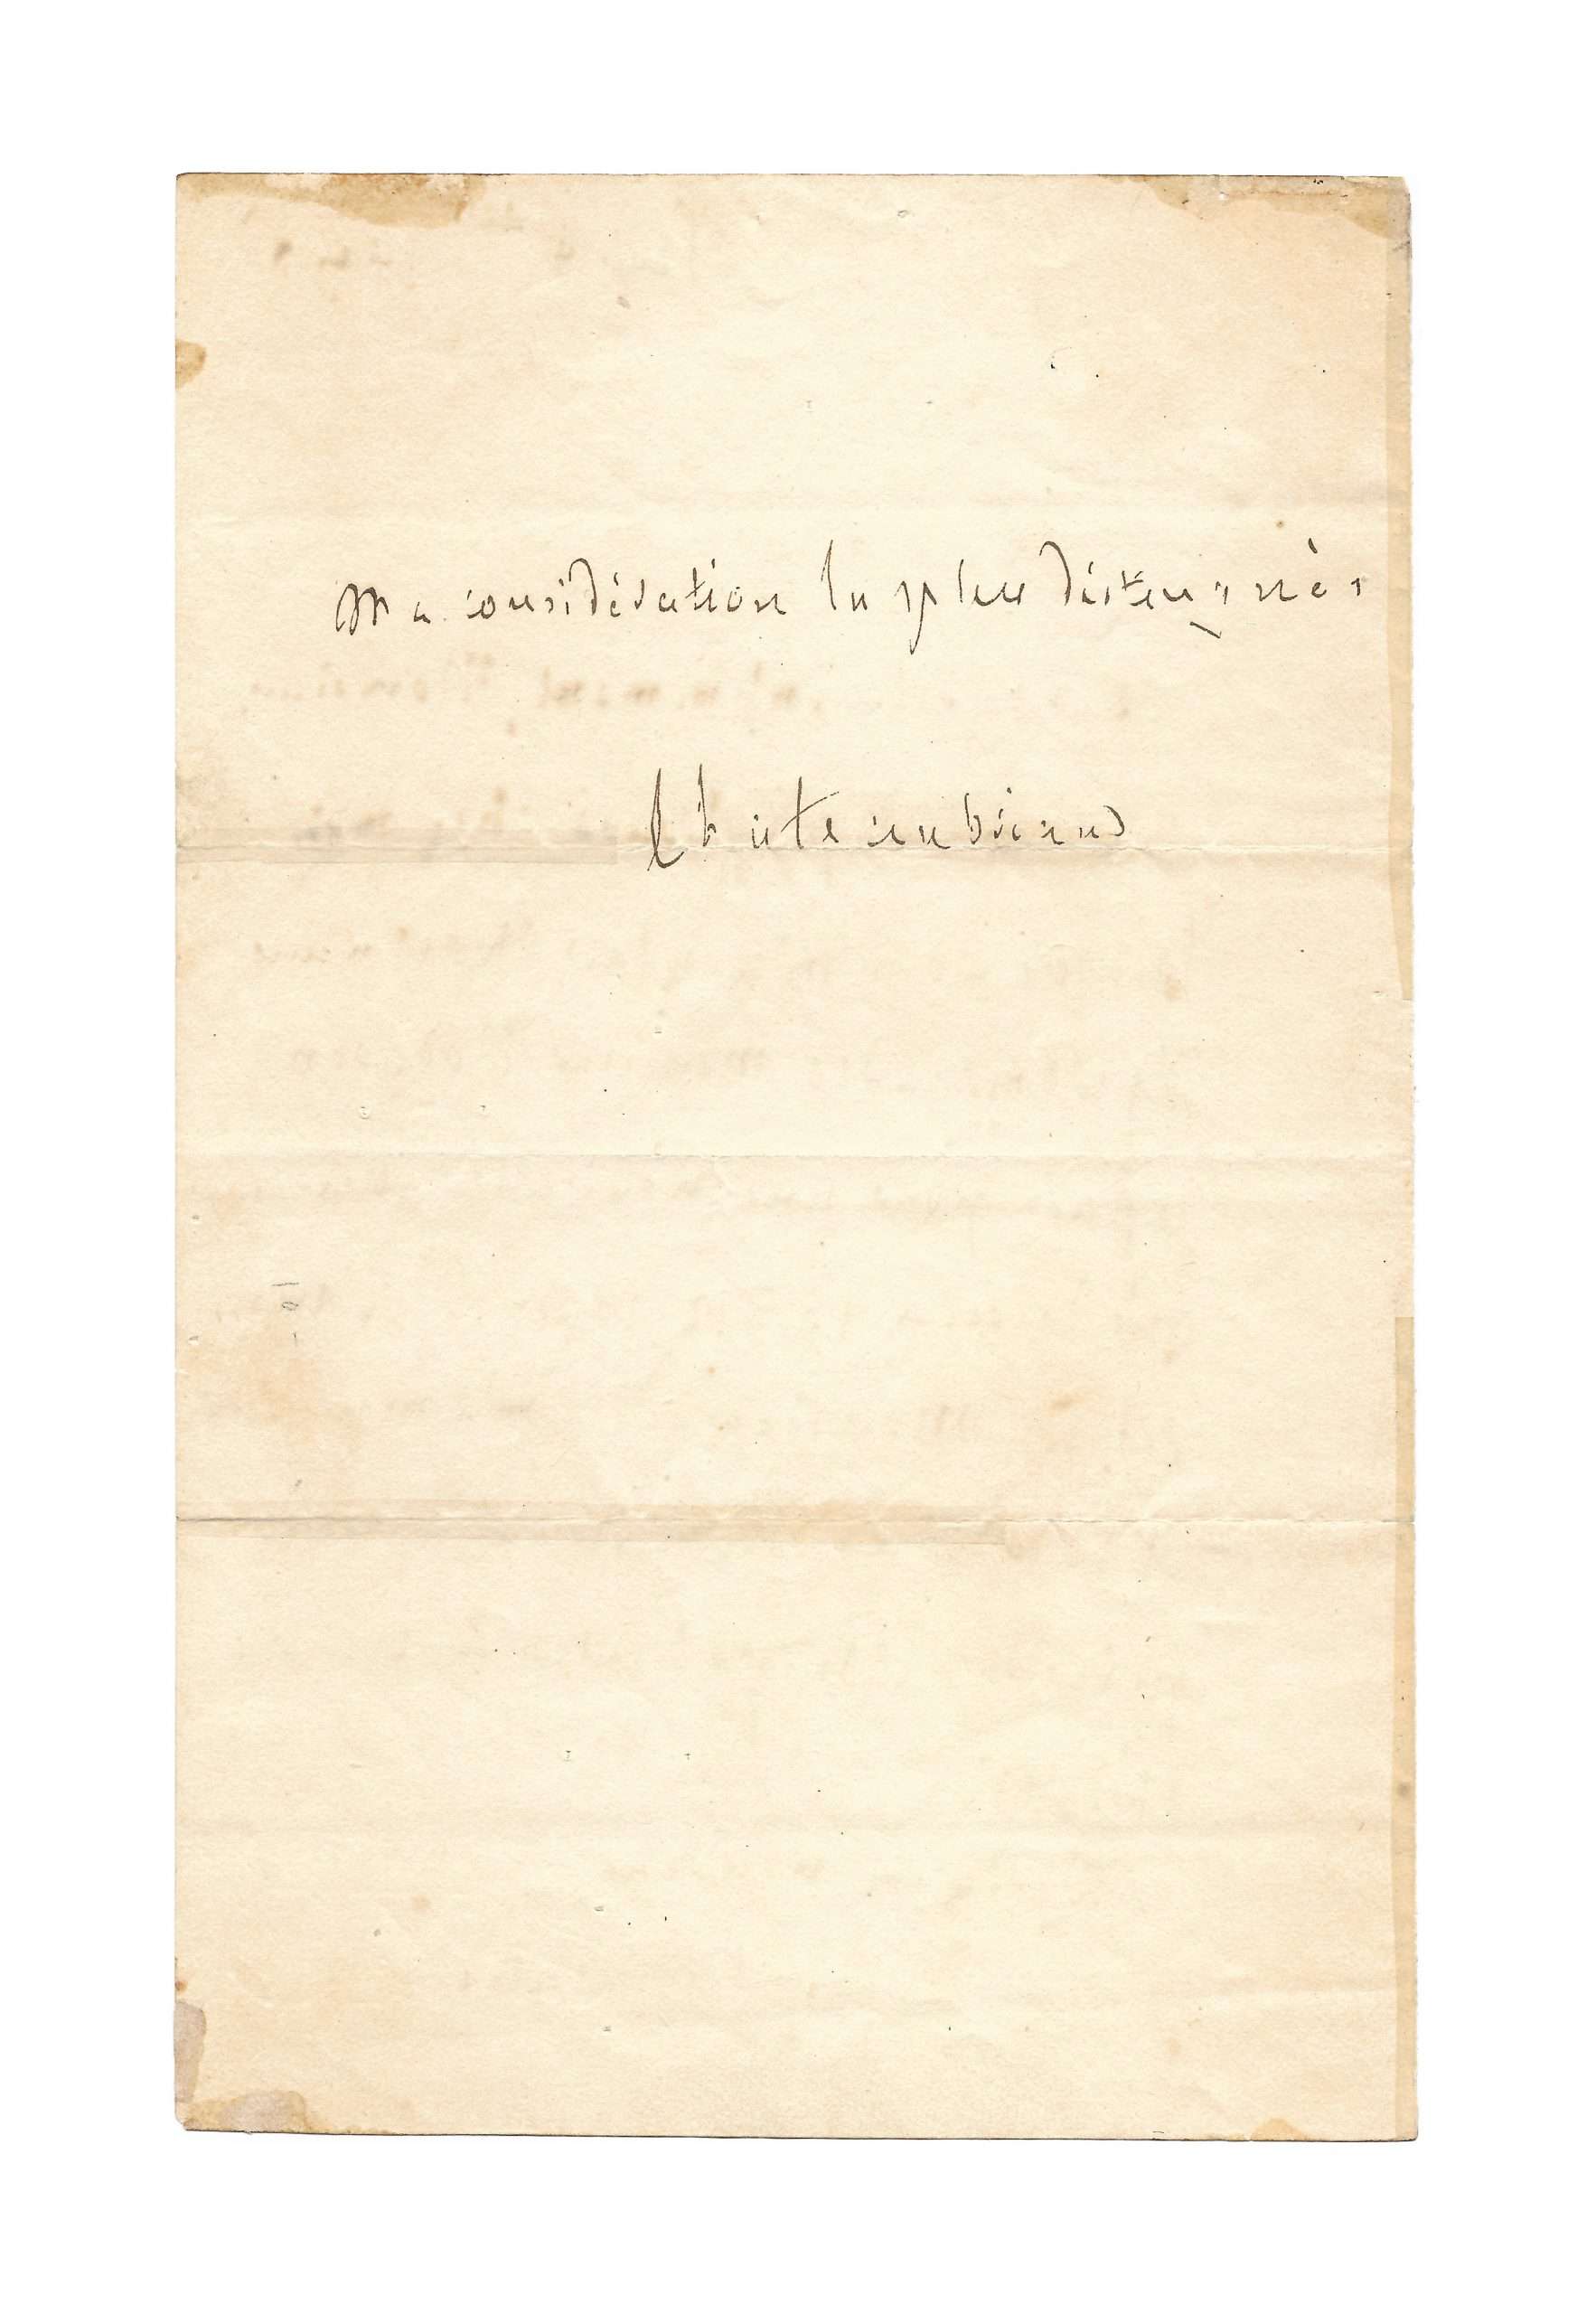 Ma considération la plus distinguée
Chateaubriand